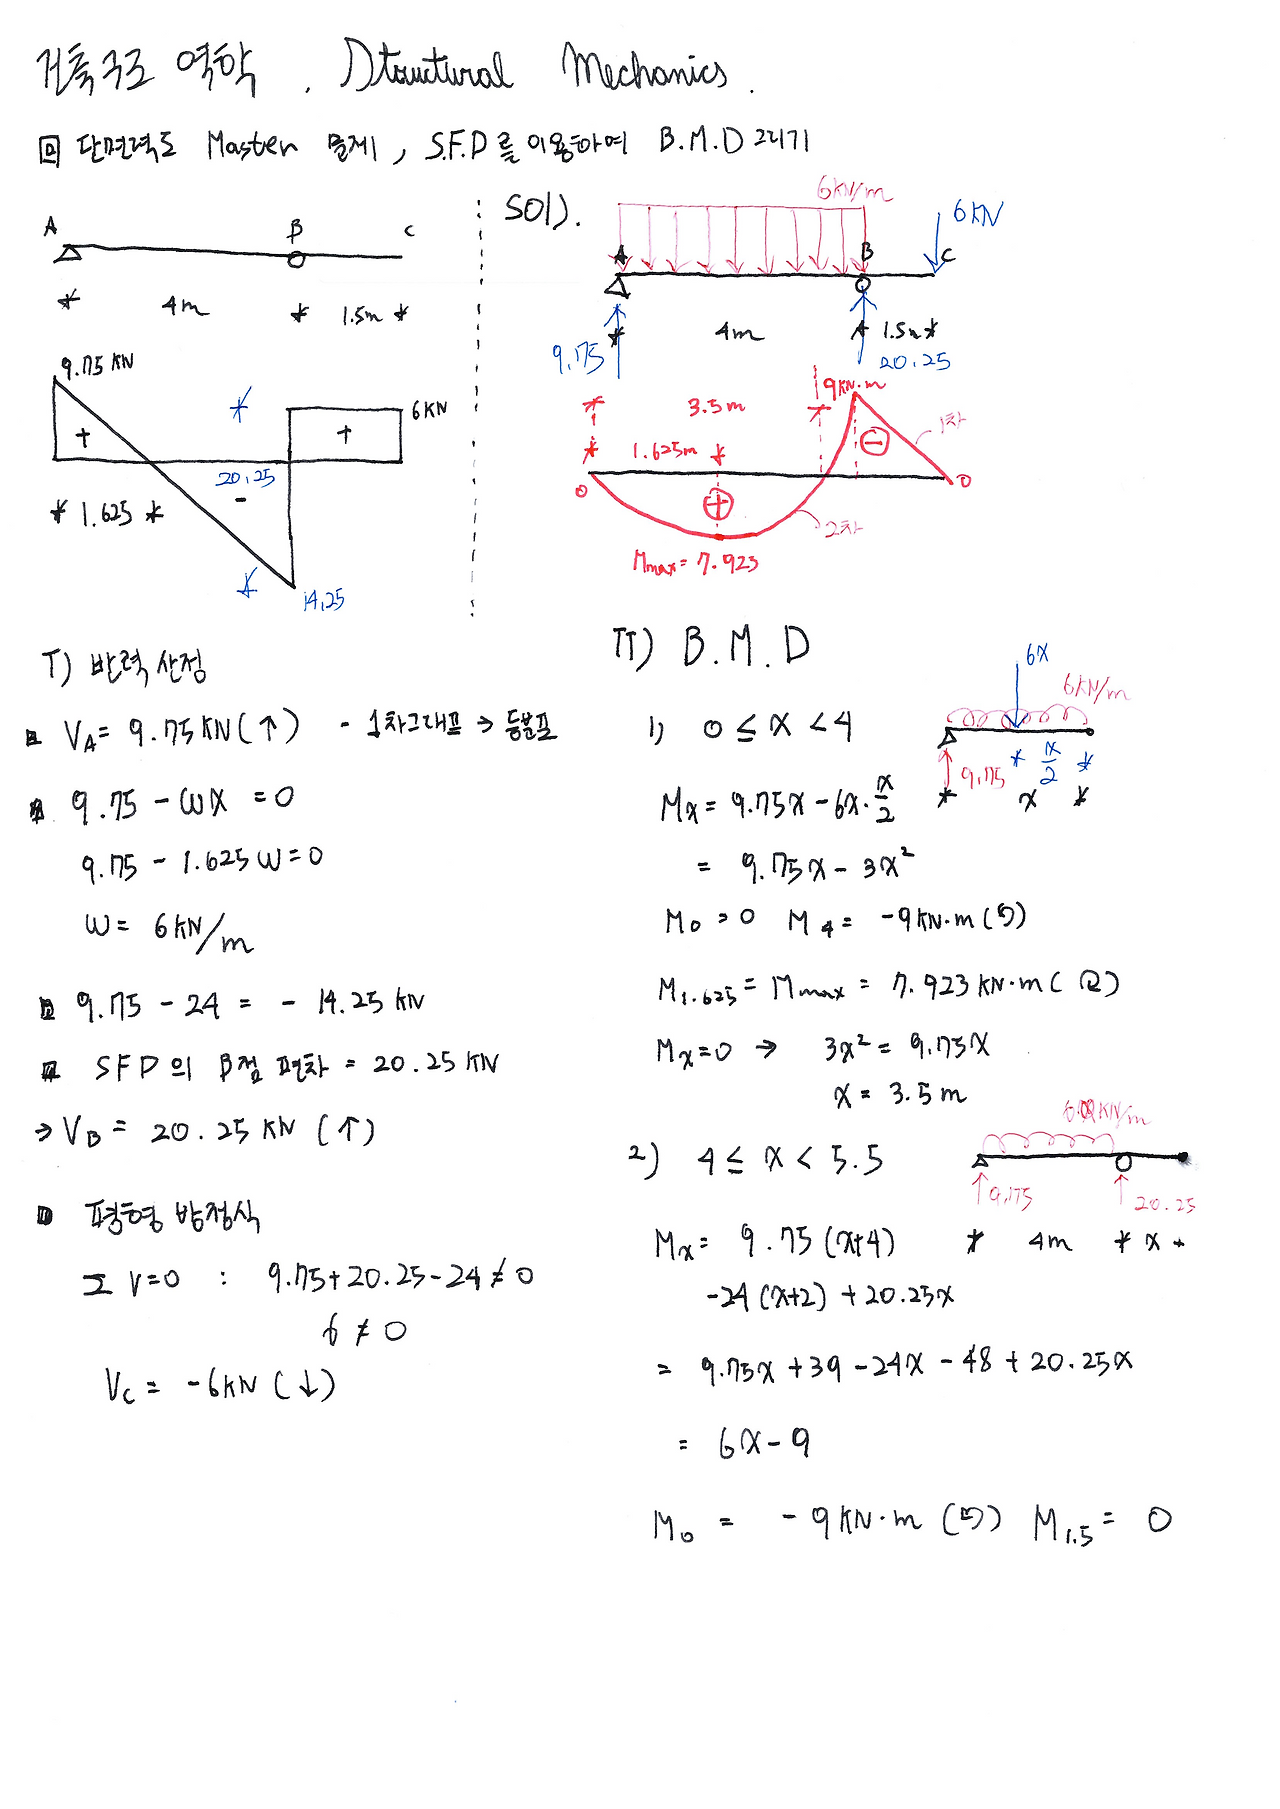 건축구조 역학 . Structural Mechanics.
回 단면력도 Master 문제1, S.F.D를 이용하여 B.M.D 그리기
A B C
4m 1.5m
9.75 KN
6KN
+ +
20.25
1.625
-
14.25
SOL).
6KN/m
6KN
A B C
4m 1.5m
9.75 20.25
9KN·m
3.5m
1.625m
1차
0 + - 0
2차
Mmax = 7.923
I) 반력 산정
VA = 9.75KN(↑) - 1차그래프 → 등분포
9.75 - ωx = 0
9.75 - 1.625ω = 0
ω = 6KN/m
9.75 - 24 = - 14.25 KN
SFD의 B점 편차 = 20.25 KN
→ VB = 20.25 KN (↑)
평형 방정식
ΣV=0 : 9.75+20.25-24 ≠ 0
6 ≠ 0
VC = -6KN (↓)
II) B.M.D
6x
6KN/m
1) 0 ≤ x < 4
9.75 x/2
x
Mx = 9.75x - 6x·x/2
= 9.75x - 3x²
M0 = 0 M4 = -9KN·m (↺)
M1.625 = Mmax = 7.923 KN·m (↻)
Mx=0 → 3x² = 9.75x
x = 3.5m
2) 4 ≤ x < 5.5
KN/m
9.75 20.25
4m x
Mx = 9.75 (x+4)
-24(x+2) + 20.25x
= 9.75x + 39 - 24x - 48 + 20.25x
= 6x - 9
M0 = - 9KN·m (↺) M1.5 = 0